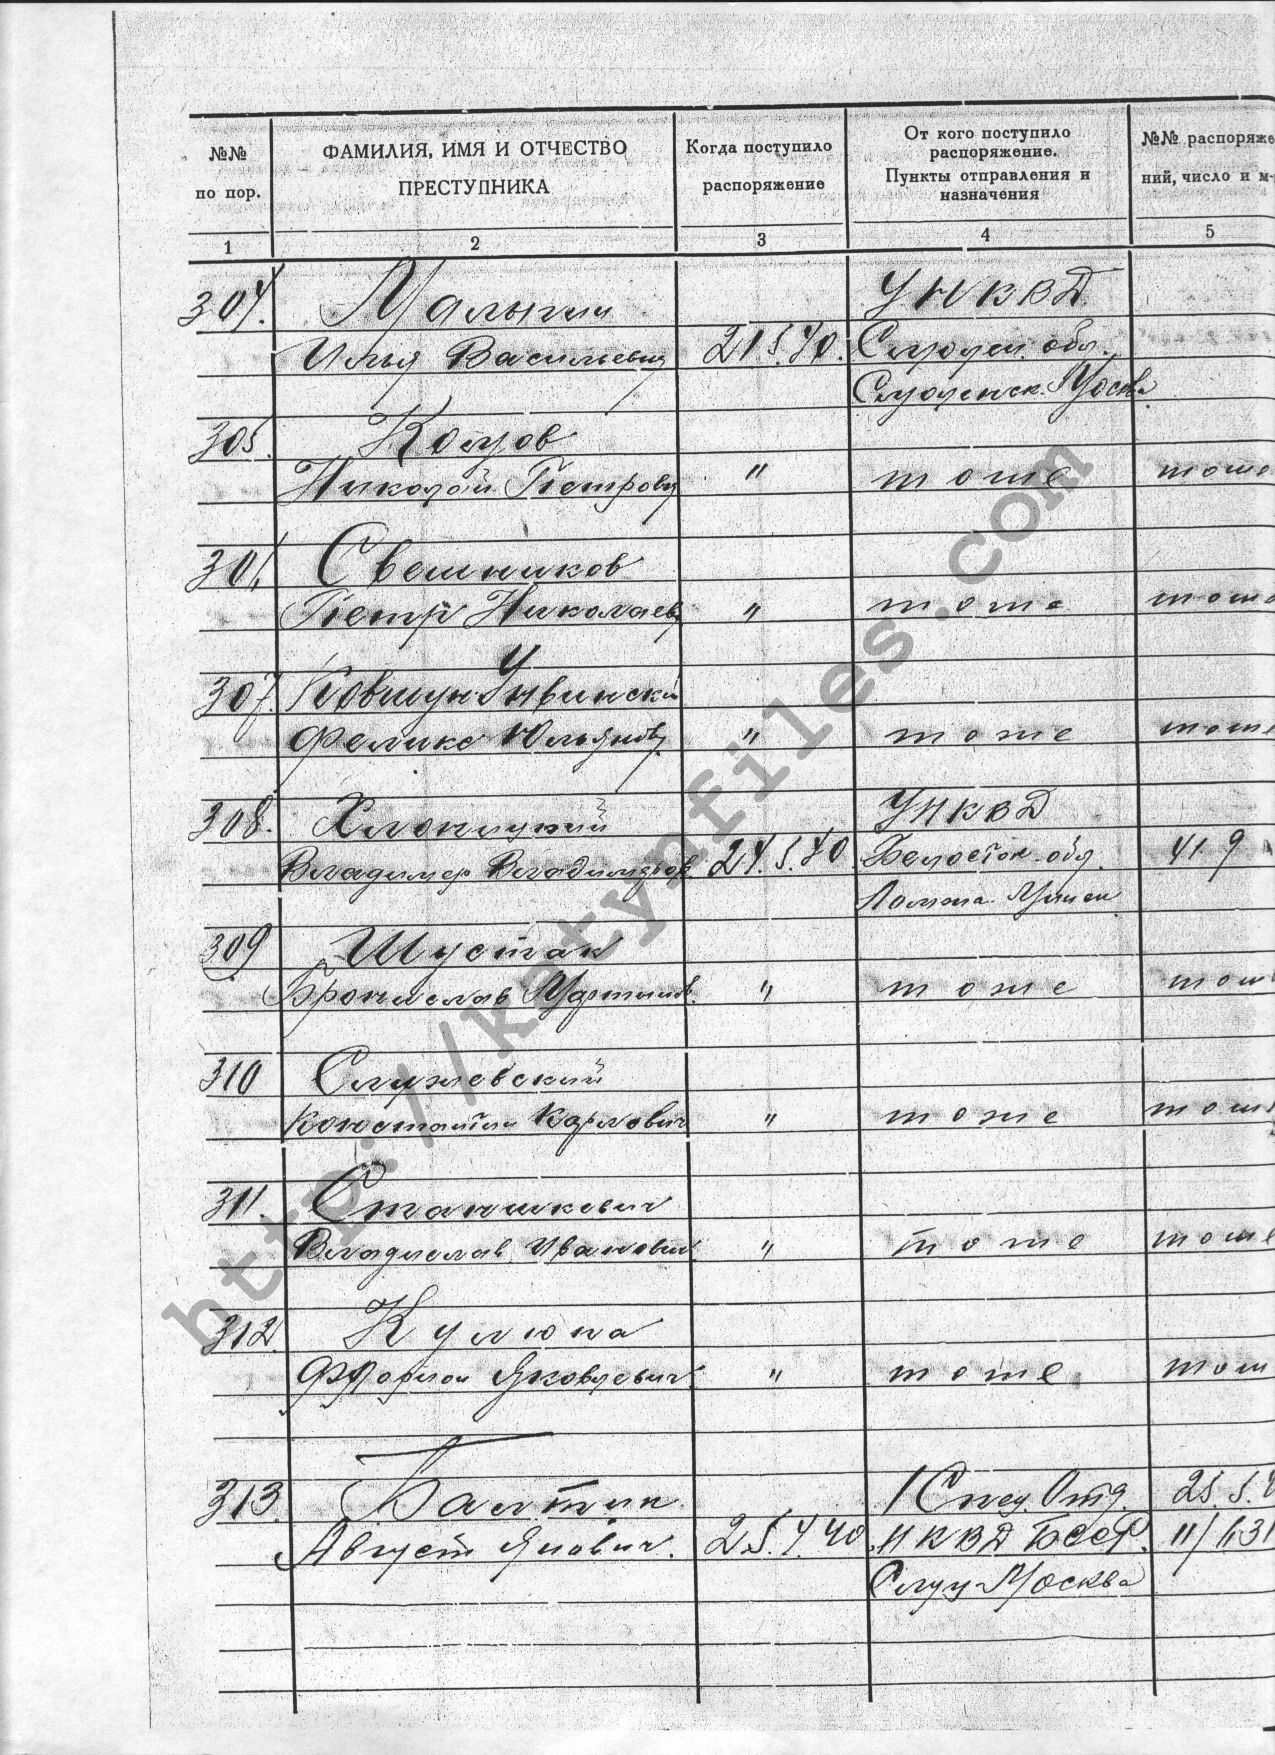 №№
по пор.
ФАМИЛИЯ, ИМЯ И ОТЧЕСТВО
ПРЕСТУПНИКА
Когда поступило
распоряжение
От кого поступило
распоряжение.
Пункты отправления и
назначения
№№ распоряже
ний, число и м-
1 2 3 4 5
304.
УНКВД
Илья Васильевич 21.5.40. Смолен. обл.
Смоленск. Москва
305.
Николай Петрович " тоже тоже
306. Свешников
Петр Николаев " тоже тоже
307.
Феликс Юльянов " тоже тоже
308. УНКВД
Владимер Владимиров 24.5.40 Белосток. обл. 41.9
Ломжа Минск
309 Шустак
Бронислав Мартинов. " тоже тож
310 Служевский
Константин Карлович " тоже тоже
311. Станишкевич
Владислав Иванович " тоже тоже
312.
Яковлевич " тоже тож
313. Балтин 1 Спец. Отд. 25.5.4
Август Янович. 25.5.40 НКВД БССР. 11/
Москва
http://katynfiles.com